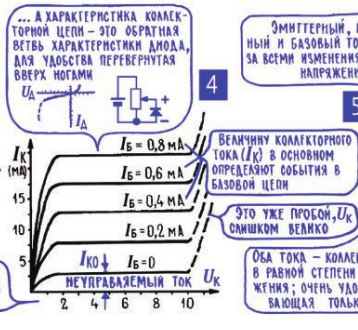 ... А ХАРАКТЕРИСТИКА КОЛЛЕК-
ТОРНОЙ ЦЕПИ – ЭТО ОБРАТНАЯ
ВЕТВЬ ХАРАКТЕРИСТИКИ ДИОДА,
ДЛЯ УДОБСТВА ПЕРЕВЕРНУТАЯ
ВВЕРХ НОГАМИ
UД
IД
+
4
ЭМИТТЕРНЫЙ,
НЫЙ И БАЗОВЫЙ ТО
ЗА ВСЕМИ ИЗМЕНЕНИЯ
НАПРЯЖЕНИ
5
IК
(МА)
25
20
15
10
5
IБ = 0,8 МА
IБ = 0,6 МА
IБ = 0,4 МА
IБ = 0,2 МА
IБ = 0
IКО
НЕУПРАВЛЯЕМЫЙ ТОК
UК
2 4 6 8 10
ВЕЛИЧИНУ КОЛЛЕКТОРНОГО
ТОКА (IК) В ОСНОВНОМ
ОПРЕДЕЛЯЮТ СОБЫТИЯ В
БАЗОВОЙ ЦЕПИ
ЭТО УЖЕ ПРОБОЙ, UК
СЛИШКОМ ВЕЛИКО
ОБА ТОКА – КОЛЛЕ
В РАВНОЙ СТЕПЕНИ
ЖЕНИЯ; ОЧЕНЬ УДО
ВАЮЩАЯ ТОЛЬК